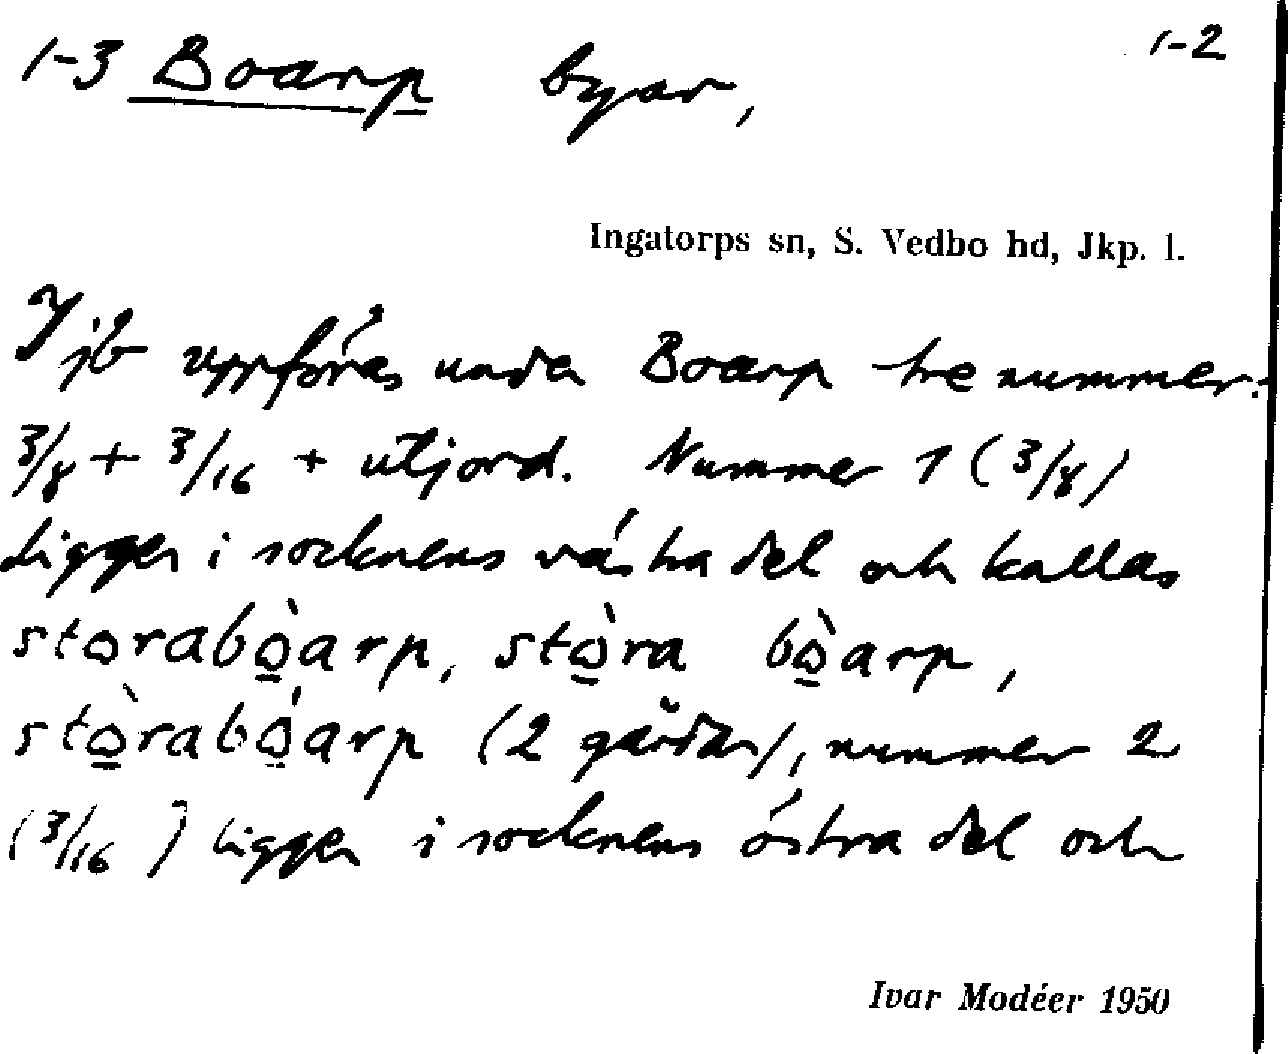 1-3 Boarp byar, 1-2
Ingatorps sn, S. Vedbo hd, Jkp. l.
I jb uppföres under Boarp tre nummer:
3/8 + 3/16 + utjord. Nummer 1 (3/8)
ligger i socknens västra del och kallas
storabò̲arp, stò̲ra bò̲arp,
stò̲rabó̲arp (2 gårdar), nummer 2
(3/16) ligger i socknens östra del och
Ivar Modéer 1950